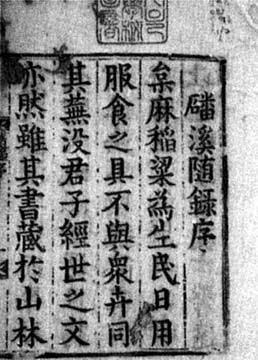 磻溪隨錄序
枲麻稻粱為生民日用
服食之具不與衆卉同
其蕪没君子經世之文
亦然雖其書藏於山林